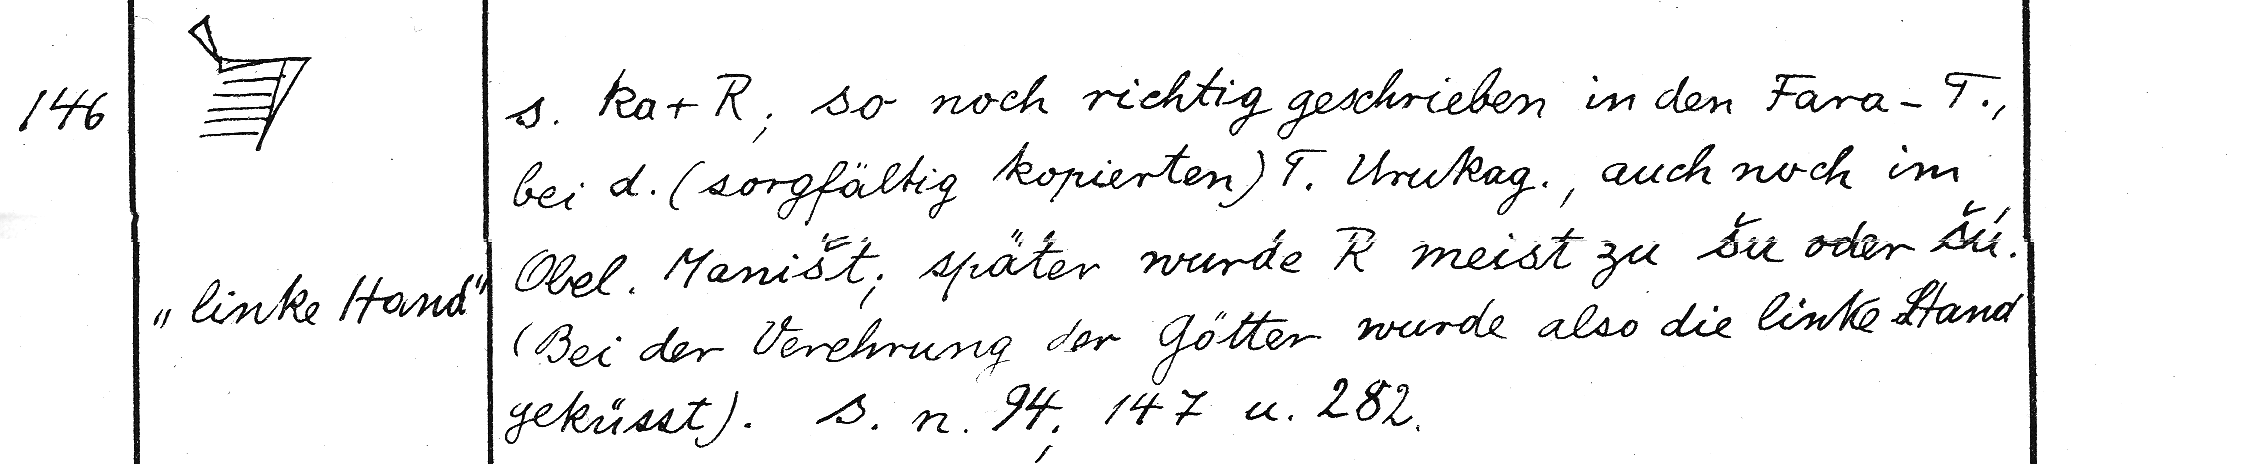 146
s. ka + R; so noch richtig geschrieben in den Fara-T.,
bei d. (sorgfältig kopierten) T. Urukag., auch noch im
„linke Hand"
Obel. Maništ; später wurde R meist zu šu oder šú.
(Bei der Verehrung der Götter wurde also die linke Hand
geküsst). s. n. 94; 147 u. 282.